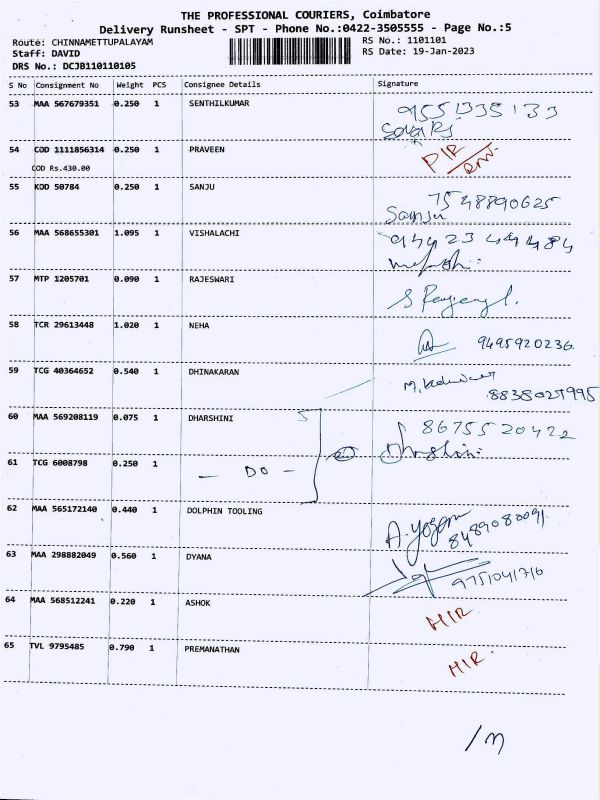 THE PROFESSIONAL COURIERS, Coimbatore
Delivery Runsheet - SPT - Phone No.:0422-3505555 - Page No.:5
Route: CHINNAMETTUPALAYAM
RS No.: 1101101
Staff: DAVID
RS Date: 19-Jan-2023
DRS No.: DCJB110110105
S No Consignment No Weight PCS Consignee Details Signature
53 MAA 567679351 0.250 1 SENTHILKUMAR 9551335133
54 COD 1111856314 0.250 1 PRAVEEN
COD Rs.430.00
55 KOD 50784 0.250 1 SANJU 7548890625
Sanju
56 MAA 568655301 1.095 1 VISHALACHI
57 MTP 1205701 0.090 1 RAJESWARI
58 TCR 29613448 1.020 1 NEHA 9495920236
59 TCG 40364652 0.540 1 DHINAKARAN 8838025995
60 MAA 569208119 0.075 1 DHARSHINI 8675520422
Dharshini
61 TCG 6008798 0.250 1 - DO -
62 MAA 565172140 0.440 1 DOLPHIN TOOLING 8489080091
63 MAA 298882049 0.560 1 DYANA 9751041716
64 MAA 568512241 0.220 1 ASHOK
65 TVL 9795485 0.790 1 PREMANATHAN